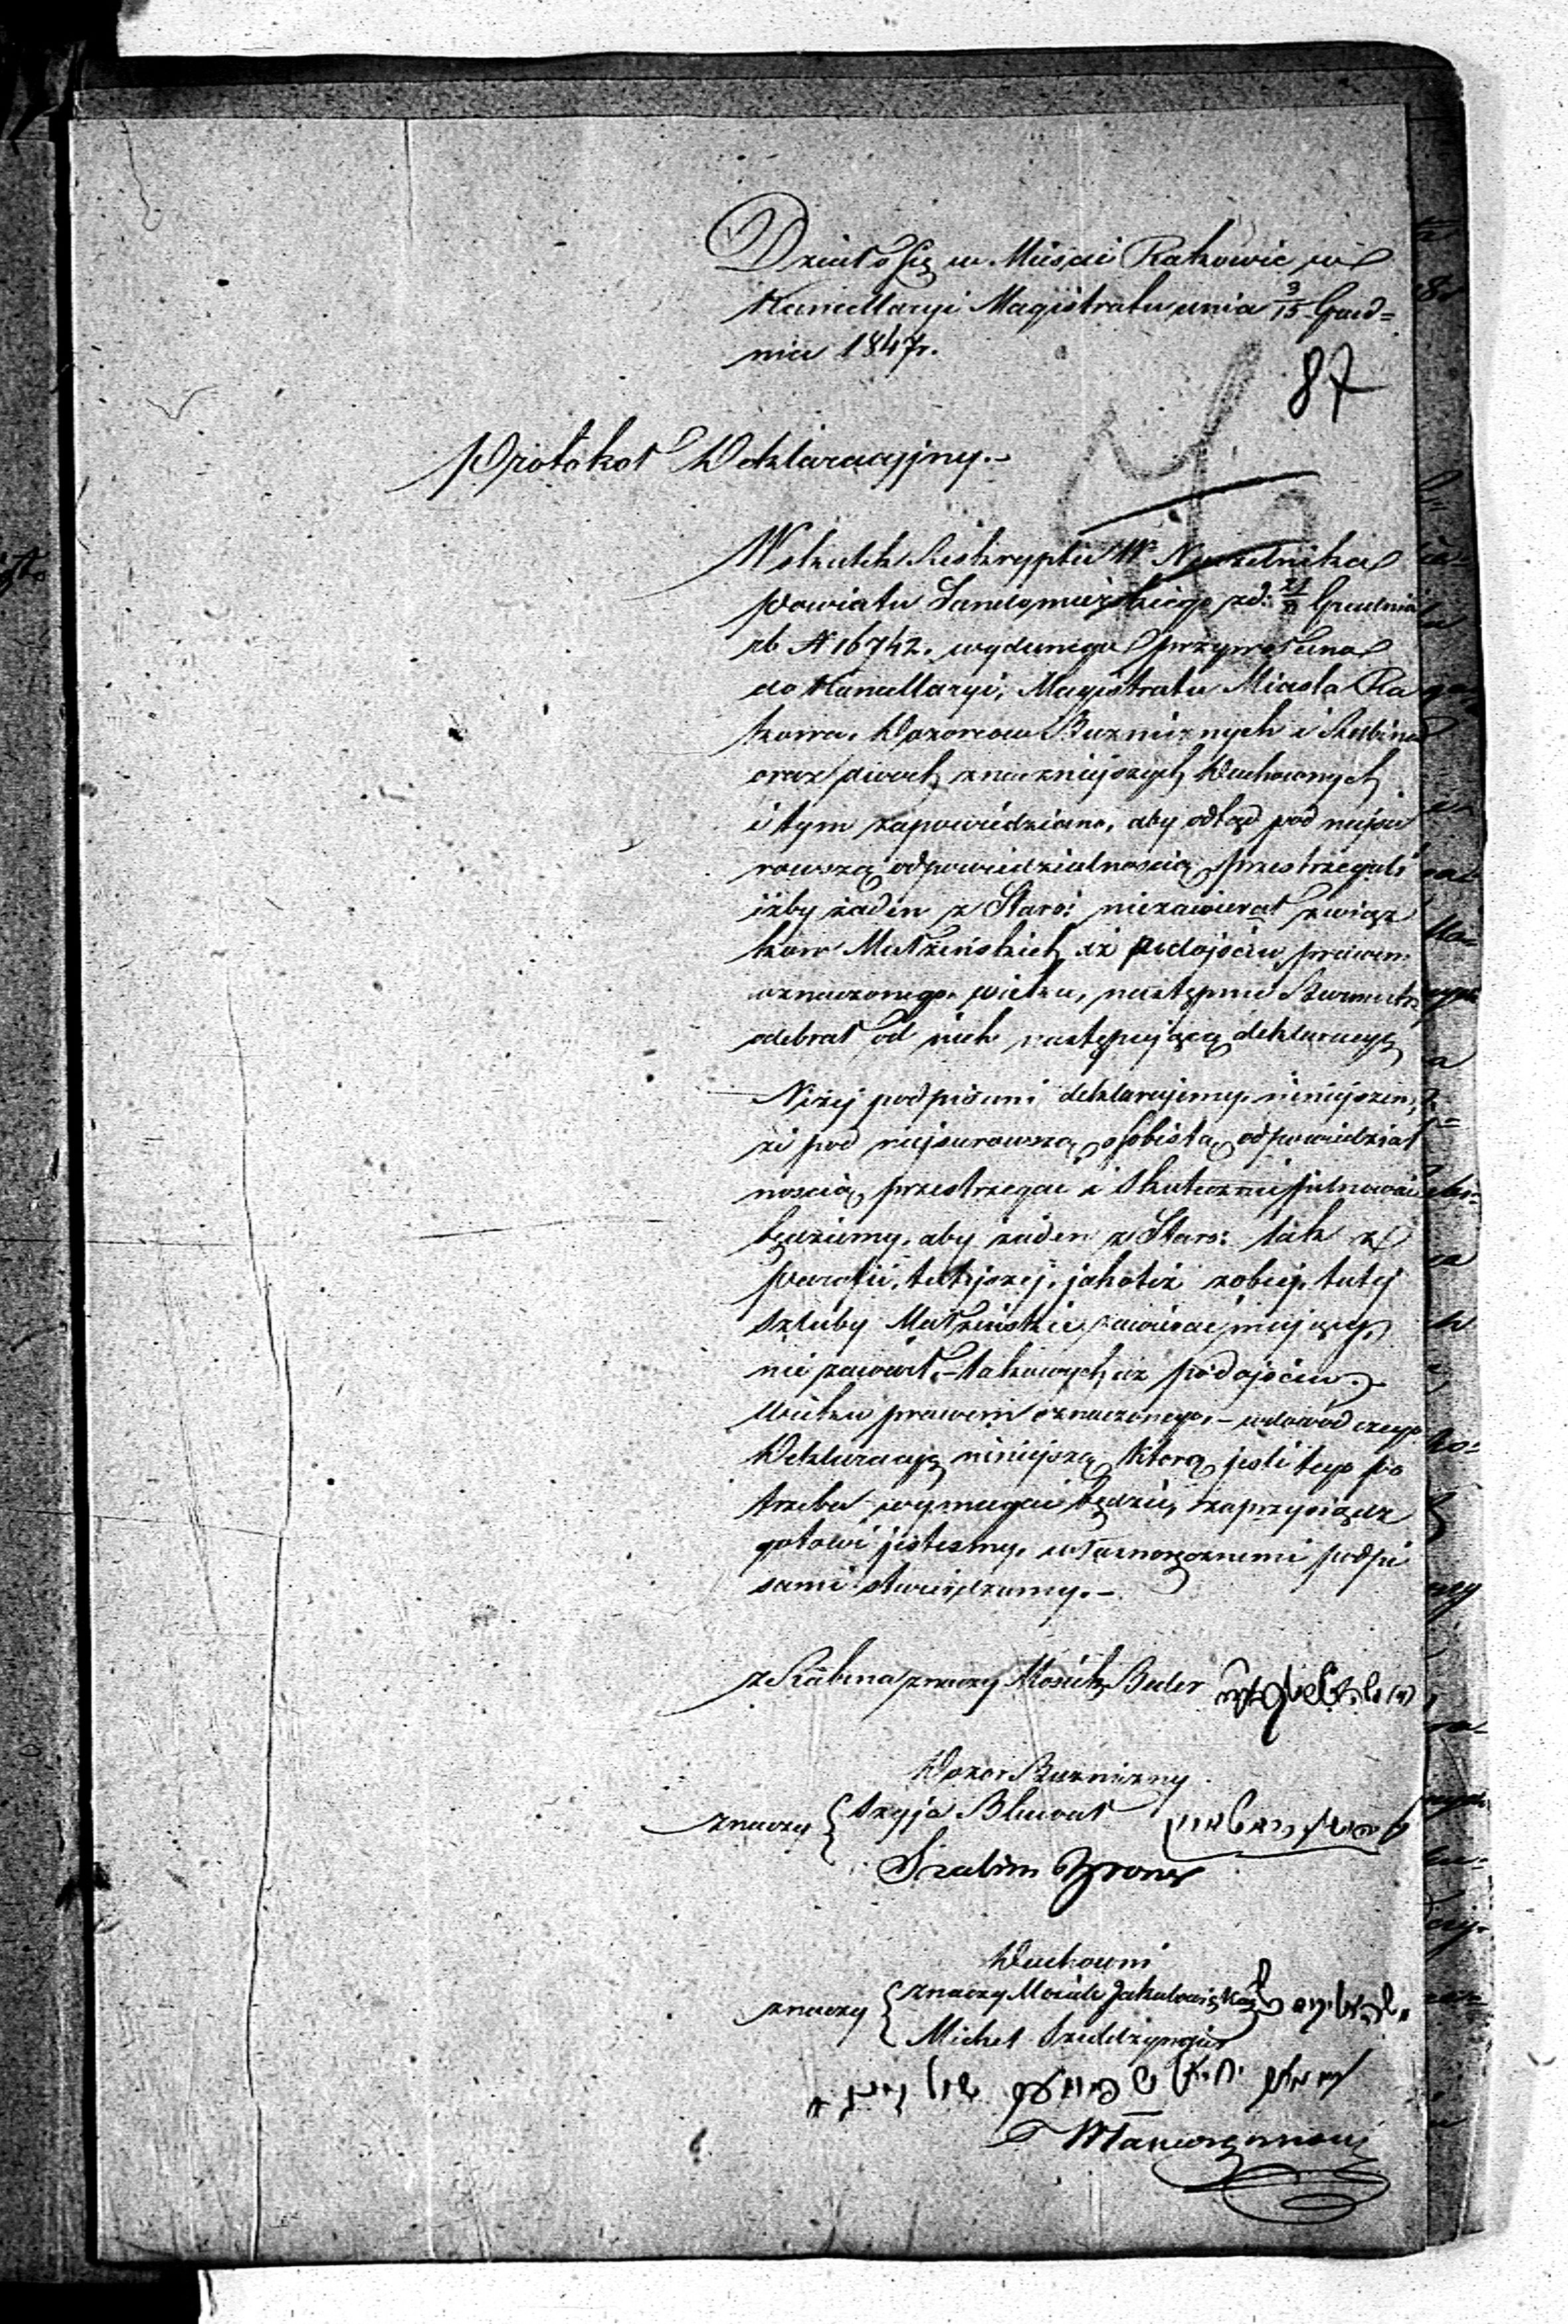 Działo się w Mieście Rakowie w
Kancellaryi Magistratu dnia 3/15 Grud=
nia 1847r.
87
Protokoł Deklaracyjny.-
Wskutek Reskryptu W° Naczelnika
Powiatu Sandomierskiego z d: Grudnia
rb N 16742. wydanego przywołano
do Kancellaryi, Magistratu Miasta Ra
kowa, Dozorców Bużniznych i Rabina
oraz dwóch znacznieyszych Duchownych
i tym zapowiedziano, aby odtąd pod naysu
rowszą odpowiedzialnoscią przestrzegali
iżby żaden z Staro: niezawierał związ
kow Małżeńskich aż po dojściu prawem
oznaczonego wieku, następnie Burmistrz
odebrał od nich następującą deklaracyę
Niżej podpisani deklarujemy niniejszem,
że pod najsurowszą osobistą odpowiedzial
noscią, przestrzegać i skutecznie pilnować
będziemy, aby żaden z Staro: tak z
Parafii, tutejszej, jakoteż z obcej, tutej
szluby Małżeńskie zawierać mający,
nie zawarł,- takowych aż po dojściu
wieku prawem oznaczonego,- w dowód czego
Deklaracyę niniejszą którą jeśli tego po
trzeba wymagać będzie, zaprzysiądz
gotowi jesteśmy, własnoręcznemi podpi
sami stwierdzamy.-
z Rabina znaczy Mosiek Beder
Dozor Bużnizny
znaczy { Szyja Bluwat
Szalim
Duchowni
znaczy { znaczy Mosiek Jakubowi
Michel